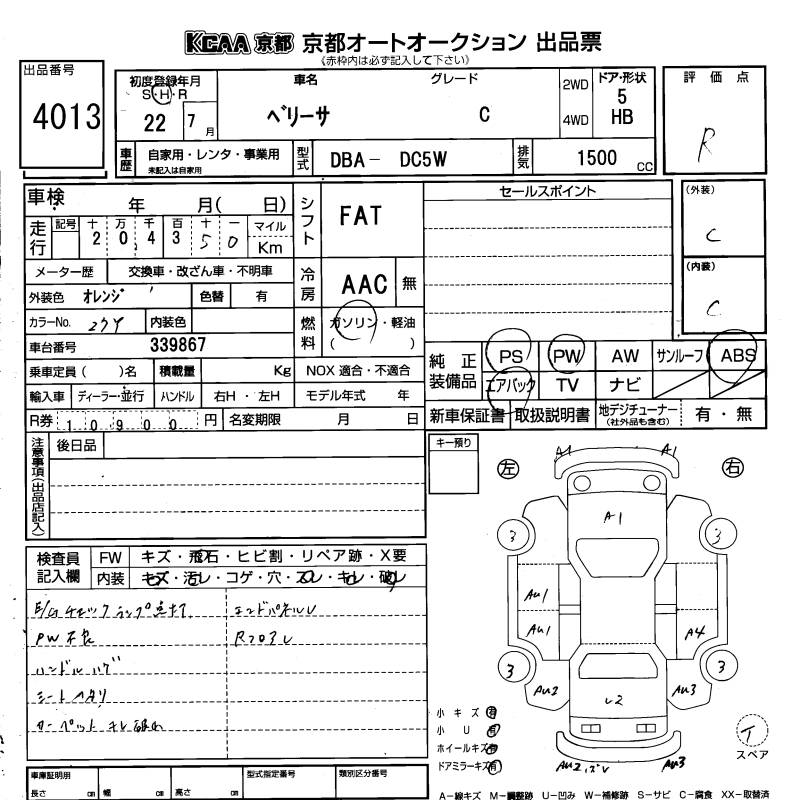 KCAA 京都 京都オートオークション 出品票
(赤枠内は必ず記入して下さい)
出品番号
4013
初度登録年月
S・H・R
22 7 月
車名
ベリーサ
グレード
C
2WD
4WD
ドア・形状
5
HB
評価点
R
車歴 自家用・レンタ・事業用
未記入は自家用
型式 DBA- DC5W
排気 1500 CC
車検 年 月( 日)
走行 記号 十 万 千 百 十 一
2 0,4 3 5 0
マイル
Km
シフト FAT
セールスポイント
(外装)
C
(内装)
C
メーター歴 交換車・改ざん車・不明車
冷房 AAC 無
外装色 オレンジ 色替 有
カラーNo. 27Y 内装色
燃料 ガソリン・軽油
( )
車台番号 339867
純正装備品 PS PW AW サンルーフ ABS
エアバック TV ナビ
乗車定員( )名 積載量 Kg NOX 適合・不適合
輸入車 ディーラー・並行 ハンドル 右H・左H モデル年式 年
新車保証書 取扱説明書 地デジチューナー
(社外品も含む)
有・無
R券 10900 円 名変期限 月 日
注意事項(出品店記入)
後日品
キー預り
左 右
A1 A1
A1
3 3
Au1
Au1
A4
3 3
Au2 Au3
U2
Au2 ズレ Au3
検査員記入欄
FW キズ・飛石・ヒビ割・リペア跡・X要
内装 キズ・汚レ・コゲ・穴・スレ・キレ・破レ
E/Gチェックランプ点灯 エンドパネルU
PW不良 RフロアU
ハンドルハゲ
シートヘタリ
カーペットキレ破れ
小キズ 有
小U 有
ホイールキズ 有
ドアミラーキズ 有
T
スペア
車庫証明用
長さ cm 幅 cm 高さ cm
型式指定番号
類別区分番号
A-線キズ M-調整跡 U-凹み W-補修跡 S-サビ C-腐食 XX-取替済